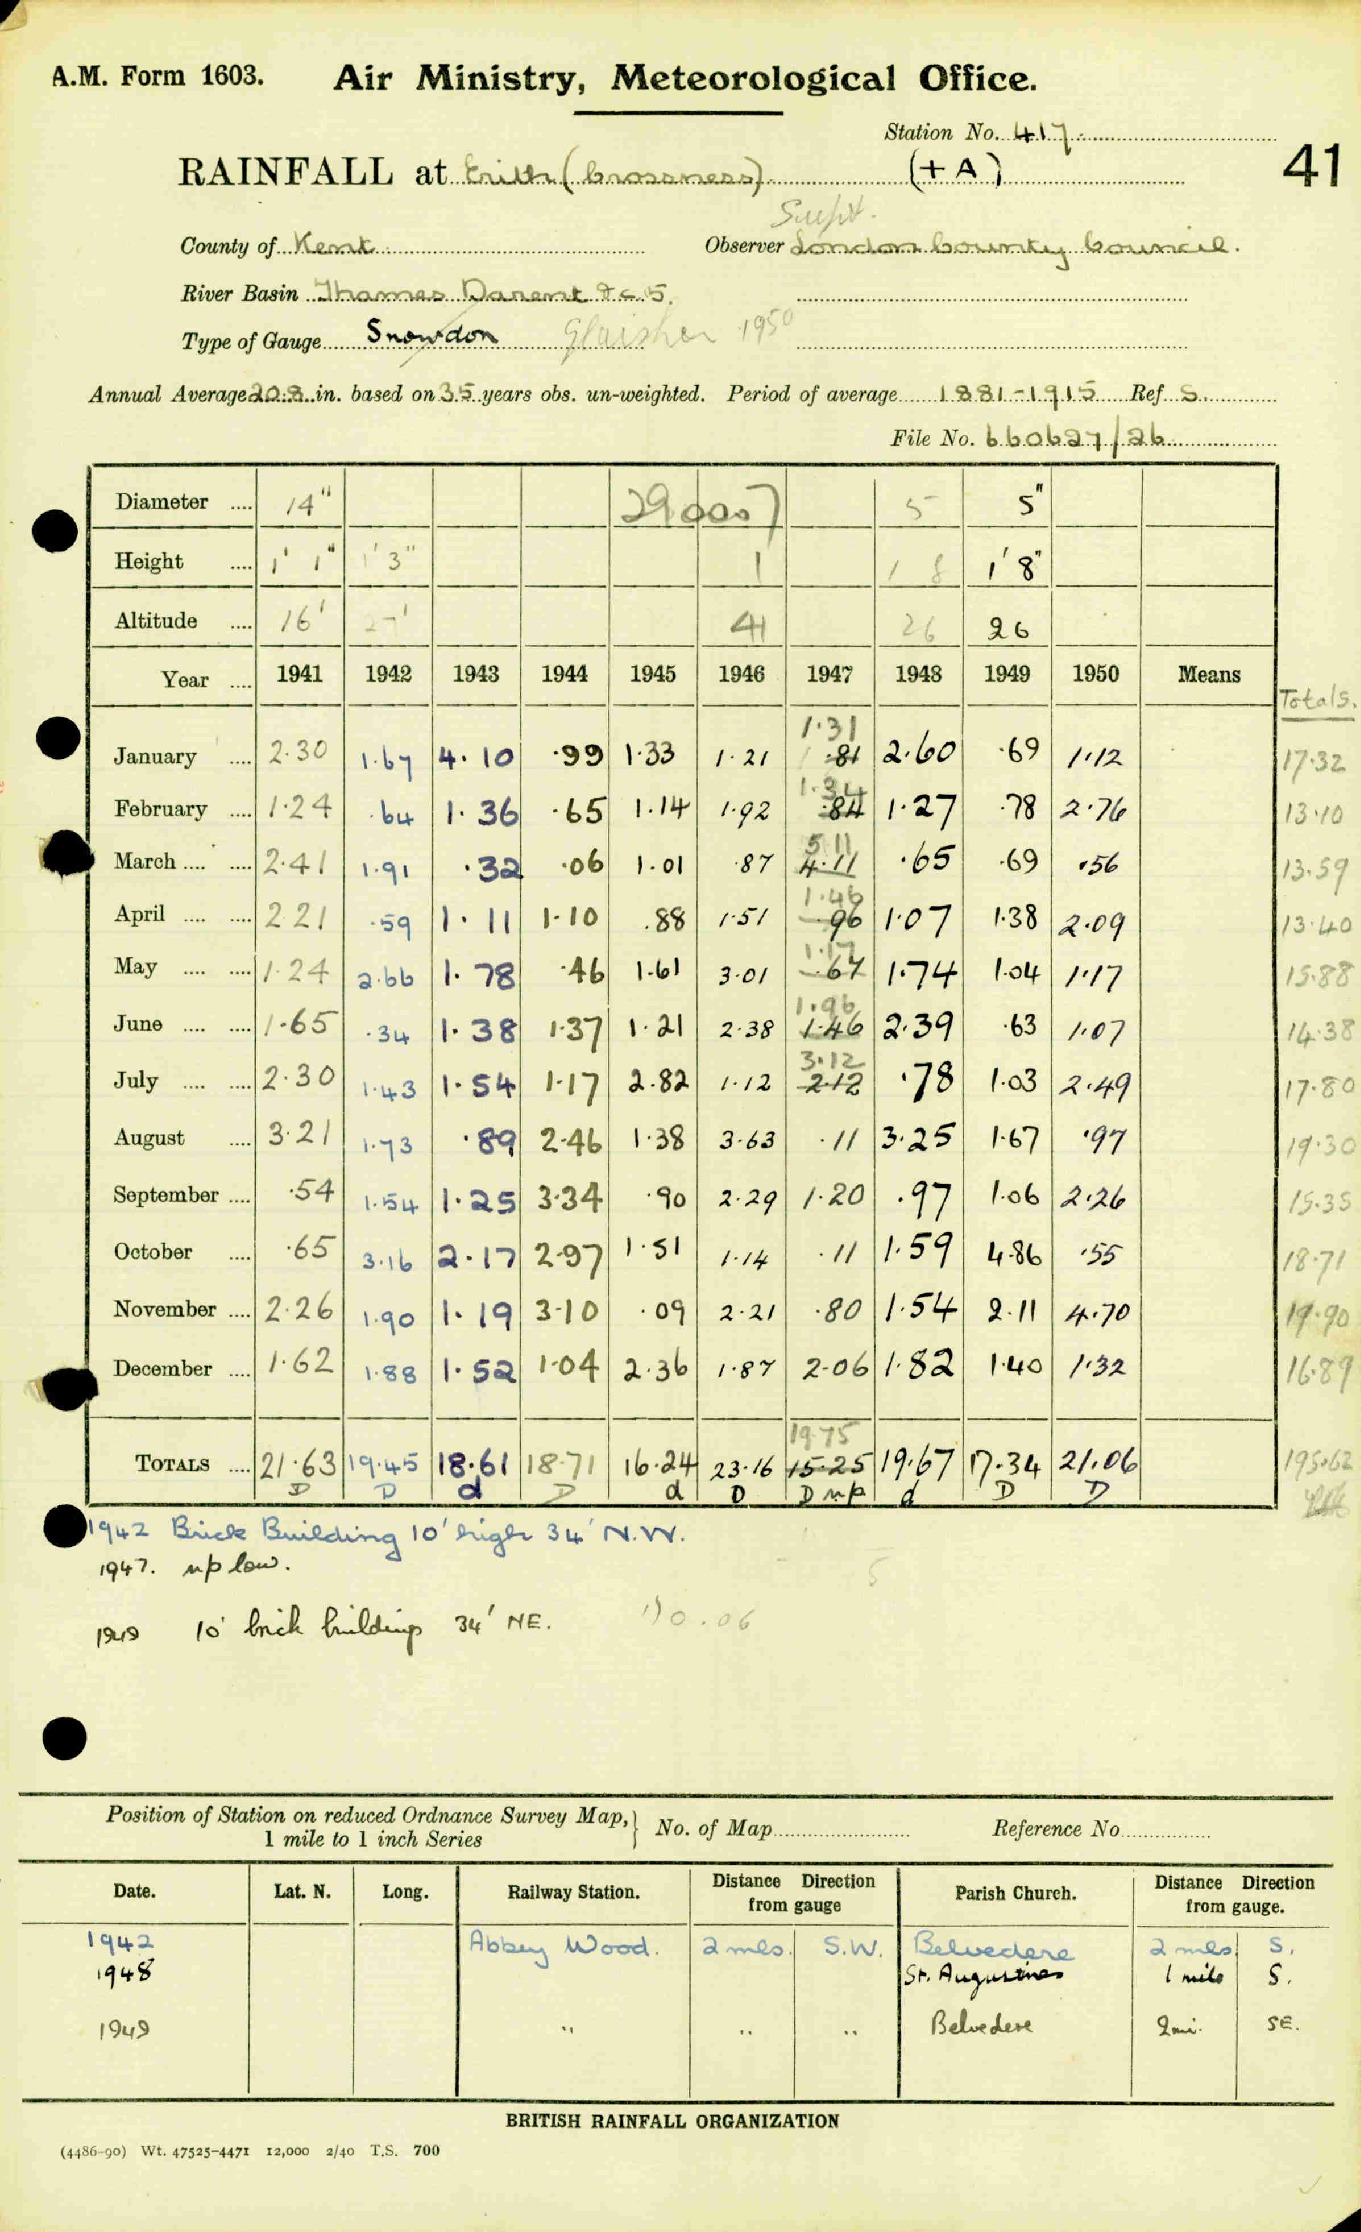 A.M. Form 1603. Air Ministry, Meteorological Office.
Station No. 417.
RAINFALL at Erith (Crossness). (+A) 41
Supt.
County of Kent Observer London County Council.
River Basin Thames Darent &c 5.
Type of Gauge Snowdon Glaisher 1950
Annual Average 20.8 in. based on 35 years obs. un-weighted. Period of average 1881-1915 Ref. S.
File No. 660627/26
Diameter .... 14" 290007 5 5"
Height .... 1' 1" 1' 3" 1 1 8 1'8"
Altitude .... 16' 27' 41 26 26
Year .... 1941 1942 1943 1944 1945 1946 1947 1948 1949 1950 Means Totals.
1.31
January .... 2.30 1.67 4.10 .99 1.33 1.21 .81 2.60 .69 1.12 17.32
1.34
February .... 1.24 .64 1.36 .65 1.14 1.92 .84 1.27 .78 2.76 13.10
5.11
March .... .... 2.41 1.91 .32 .06 1.01 .87 4.11 .65 .69 .56 13.59
1.46
April .... .... 2.21 .59 1.11 1.10 .88 1.51 .96 1.07 1.38 2.09 13.40
1.17
May .... .... 1.24 2.66 1.78 .46 1.61 3.01 .67 1.74 1.04 1.17 15.88
1.96
June .... .... 1.65 .34 1.38 1.37 1.21 2.38 1.46 2.39 .63 1.07 14.38
3.12
July .... .... 2.30 1.43 1.54 1.17 2.82 1.12 2.12 .78 1.03 2.49 17.80
August .... 3.21 1.73 .89 2.46 1.38 3.63 .11 3.25 1.67 .97 19.30
September .... .54 1.54 1.25 3.34 .90 2.29 1.20 .97 1.06 2.26 15.35
October .... .65 3.16 2.17 2.97 1.51 1.14 .11 1.59 4.86 .55 18.71
November .... 2.26 1.90 1.19 3.10 .09 2.21 .80 1.54 2.11 4.70 19.90
December .... 1.62 1.88 1.52 1.04 2.36 1.87 2.06 1.82 1.40 1.32 16.89
19.75
TOTALS .... 21.63 19.45 18.61 18.71 16.24 23.16 15.25 19.67 17.34 21.06 195.62
D D d D d D D np d D D
1942 Brick Building 10' high 34' N.W.
1947. np low.
1949 10' brick buildings 34' NE.
Position of Station on reduced Ordnance Survey Map, No. of Map Reference No
1 mile to 1 inch Series
Date. Lat. N. Long. Railway Station. Distance Direction from gauge Parish Church. Distance Direction from gauge.
1942 Abbey Wood. 2 mls. S.W. Belvedere 2 mls S.
1948 St. Augustines 1 mile S.
1949 " " " Belvedere 2 mi. SE.
BRITISH RAINFALL ORGANIZATION
(4486-90) Wt. 47525-4471 12,000 2/40 T.S. 700